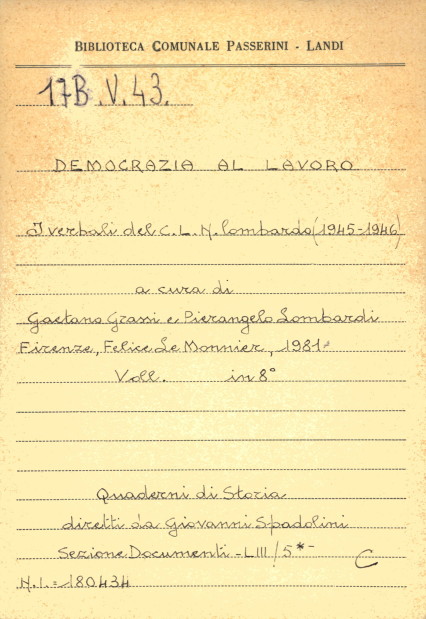 BIBLIOTECA COMUNALE PASSERINI - LANDI
17B.V.43.
DEMOCRAZIA AL LAVORO
I verbali del C.L.N. lombardo (1945-1946)
a cura di
Gaetano Grassi e Pierangelo Lombardi
Firenze, Felice Le Monnier, 1981-
Voll. in 8°
Quaderni di Storia
diretti da Giovanni Spadolini
Sezione Documenti - LIII/5*-
C
N.I. = 180434